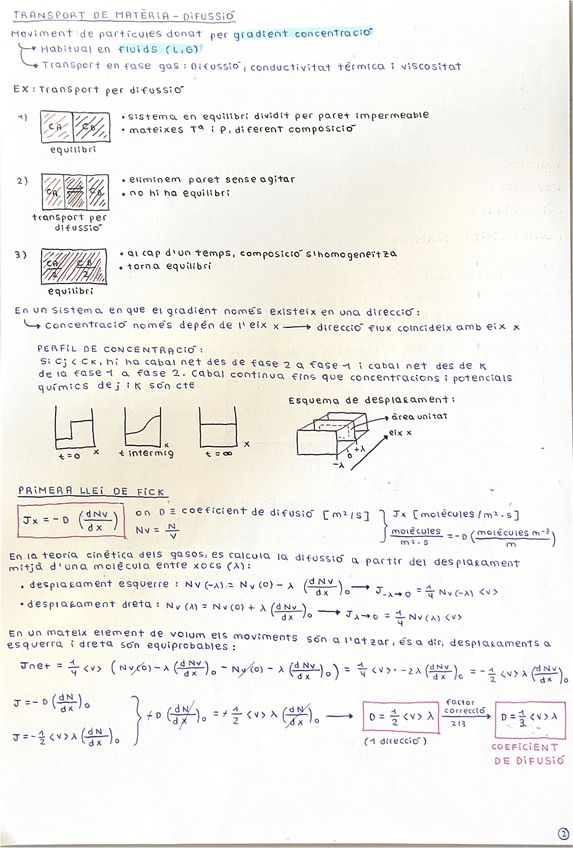 TRANSPORT DE MATÈRIA - DIFUSSIÓ
Moviment de partícules donat per gradient concentració
↳ Habitual en fluids (L,G)
↳ Transport en fase gas: Difussió, conductivitat tèrmica i viscositat
EX: Transport per difussió
1)
CA CB
equilibri
• sistema en equilibri dividit per paret impermeable
• mateixes Tª i P, diferent composició
2)
CA CB
transport per
difussió
• eliminem paret sense agitar
• no hi ha equilibri
3)
CA/2 CB/2
equilibri
• al cap d'un temps, composició s'homogeneïtza
• torna equilibri
En un sistema en que el gradient només existeix en una direcció:
↳ concentració només depèn de l'eix x → direcció flux coincideix amb eix x
PERFIL DE CONCENTRACIÓ:
Si Cj < Ck, hi ha cabal net des de fase 2 a fase 1 i cabal net des de k
de la fase 1 a fase 2. Cabal continua fins que concentracions i potencials
químics de j i k són cte
x
t=0
x
t intermig
x
t=∞
Esquema de desplaçament:
àrea unitat
eix x
+λ
0
-λ
PRIMERA LLEI DE FICK
Jx = -D (dNv/dx)
on D ≡ coeficient de difusió [m²/s]
Nv = N/V
Jx [molècules/m²·s]
molècules/m²·s = -D (molècules m⁻³/m)
En la teoria cinètica dels gasos, es calcula la difussió a partir del desplaçament
mitjà d'una molècula entre xocs (λ):
• desplaçament esquerre: Nv(-λ) = Nv(0) - λ (dNv/dx)₀ → J-λ→0 = 1/4 Nv(-λ) <v>
• desplaçament dreta: Nv(λ) = Nv(0) + λ (dNv/dx)₀ → Jλ→0 = 1/4 Nv(λ) <v>
En un mateix element de volum els moviments són a l'atzar, és a dir, desplaçaments a
esquerra i dreta són equiprobables:
Jnet = 1/4 <v> (Nv(0) - λ (dNv/dx)₀ - Nv(0) - λ (dNv/dx)₀) = 1/4 <v> · -2λ (dNv/dx)₀ = -1/2 <v> λ (dNv/dx)₀
J = -D (dN/dx)₀
J = -1/2 <v> λ (dN/dx)₀
-D (dN/dx)₀ = -1/2 <v> λ (dN/dx)₀ → D = 1/2 <v> λ
(1 direcció)
factor
correcció
2/3
D = 1/3 <v> λ
COEFICIENT
DE DIFUSIÓ
2